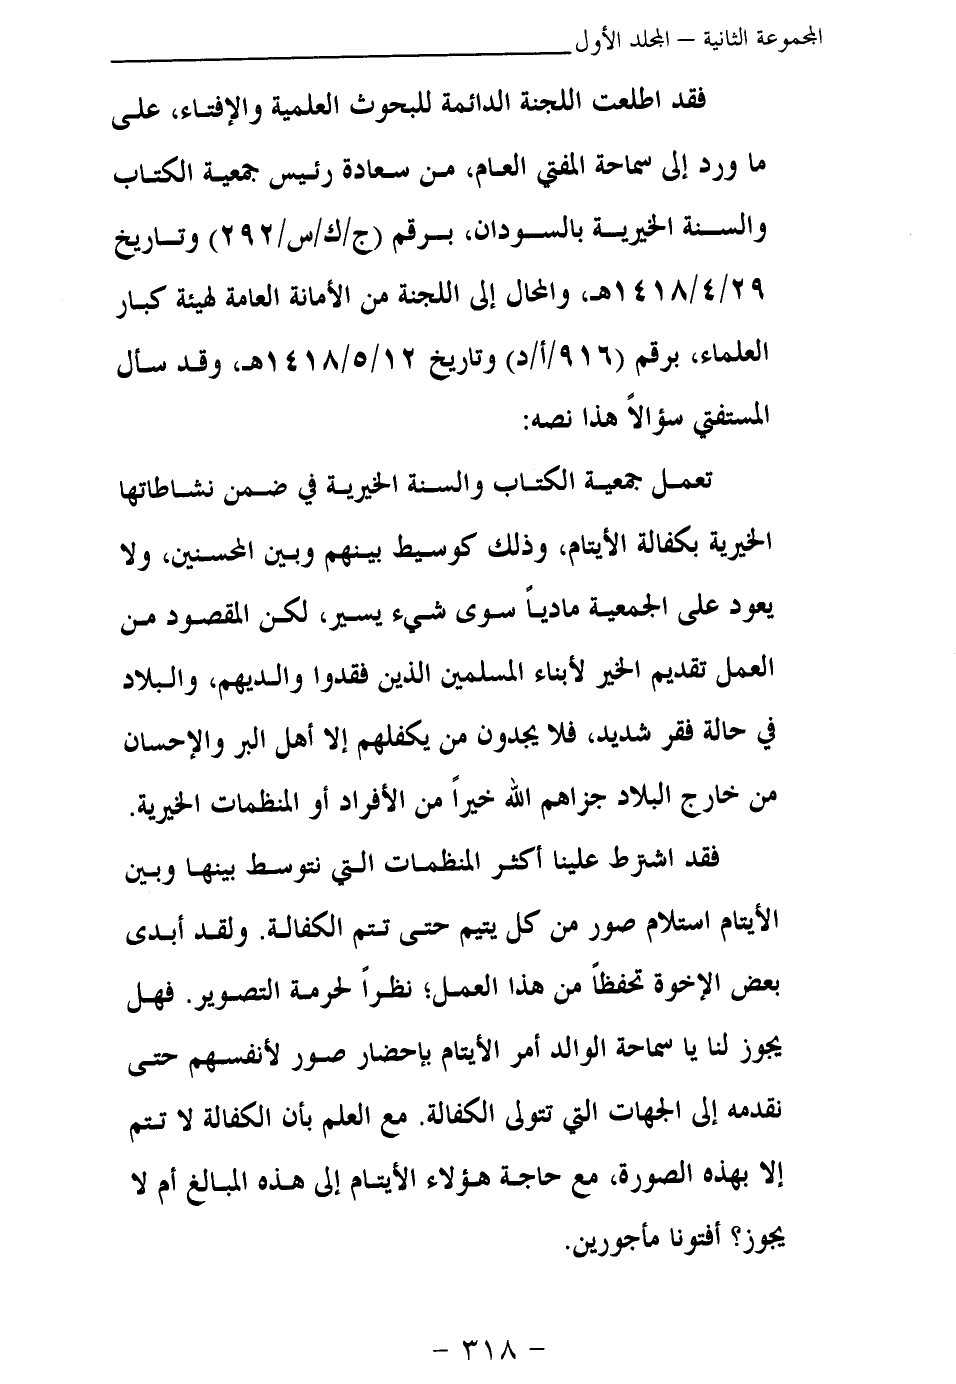 المجموعة الثانية – المجلد الأول
فقد اطلعت اللجنة الدائمة للبحوث العلمية والإفتاء، على
ما ورد إلى سماحة المفتي العام، من سعادة رئيس جمعية الكتاب
والسنة الخيرية بالسودان، برقم (ج/ك/س/٢٩٢) وتاريخ
١٤١٨/٤/٢٩هـ، والمحال إلى اللجنة من الأمانة العامة لهيئة كبار
العلماء، برقم (٩١٦/أ/د) وتاريخ ١٤١٨/٥/١٢هـ، وقد سأل
المستفتي سؤالاً هذا نصه:
تعمل جمعية الكتاب والسنة الخيرية في ضمن نشاطاتها
الخيرية بكفالة الأيتام، وذلك كوسيط بينهم وبين المحسنين، ولا
يعود على الجمعية مادياً سوى شيء يسير، لكن المقصود من
العمل تقديم الخير لأبناء المسلمين الذين فقدوا والديهم، والبلاد
في حالة فقر شديد، فلا يجدون من يكفلهم إلا أهل البر والإحسان
من خارج البلاد جزاهم الله خيراً من الأفراد أو المنظمات الخيرية.
فقد اشترط علينا أكثر المنظمات التي نتوسط بينها وبين
الأيتام استلام صور من كل يتيم حتى تتم الكفالة. ولقد أبدى
بعض الإخوة تحفظاً من هذا العمل؛ نظراً لحرمة التصوير. فهل
يجوز لنا يا سماحة الوالد أمر الأيتام بإحضار صور لأنفسهم حتى
نقدمه إلى الجهات التي تتولى الكفالة. مع العلم بأن الكفالة لا تتم
إلا بهذه الصورة، مع حاجة هؤلاء الأيتام إلى هذه المبالغ أم لا
يجوز؟ أفتونا مأجورين.
– ٣١٨ –